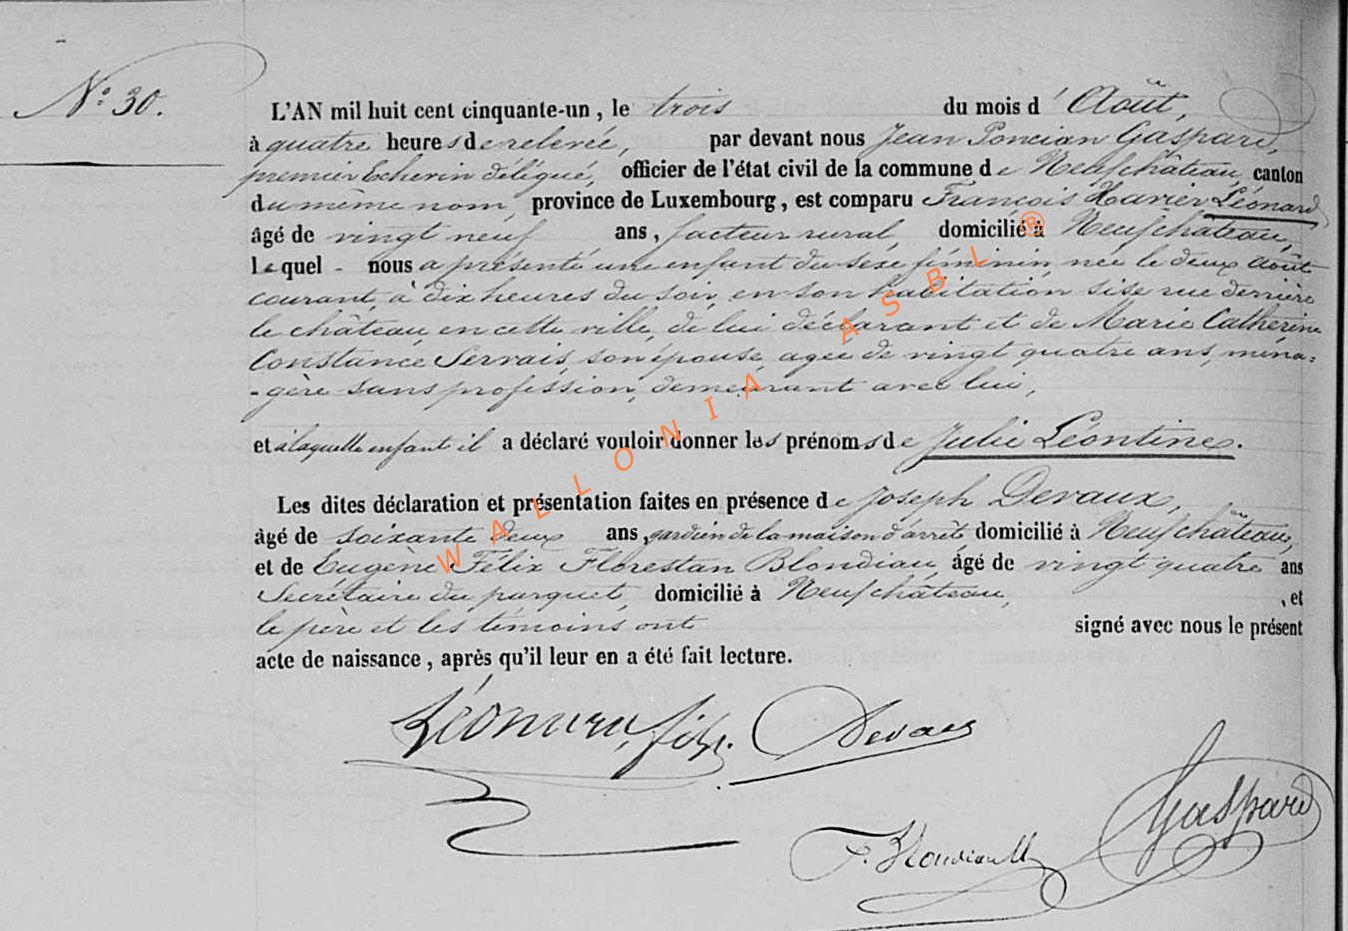 N° 30.
L'AN mil huit cent cinquante-un, le trois du mois d'Août,
à quatre heures de relevée, par devant nous Jean Poncian Gaspard,
premier Echevin délégué, officier de l'état civil de la commune de Neufchâteau, canton
du même nom, province de Luxembourg, est comparu François Xavier Léonard
âgé de vingt neuf ans, facteur rural, domicilié à Neufchâteau,
lequel nous a présenté une enfant du sexe féminin, née le deux Août
courant, à dix heures du soir, en son habitation, sise rue derrière
le château, en cette ville, de lui déclarant et de Marie Catherine
Constance Servais, son épouse, agée de vingt quatre ans, ména=
-gère sans profession, demeurant avec lui,
et à laquelle enfant il a déclaré vouloir donner les prénoms de Julie Léontine.
Les dites déclaration et présentation faites en présence de Joseph Devaux,
âgé de soixante deux ans, gardien de la maison d'arrêt domicilié à Neufchâteau,
et de Eugène Félix Florestan Blondiau, âgé de vingt quatre ans
Secrétaire du parquet, domicilié à Neufchâteau, , et
le père et les témoins ont signé avec nous le présent
acte de naissance, après qu'il leur en a été fait lecture.
Léonard, fils. Devaux
Gaspard
WALLONIA ASBL ®